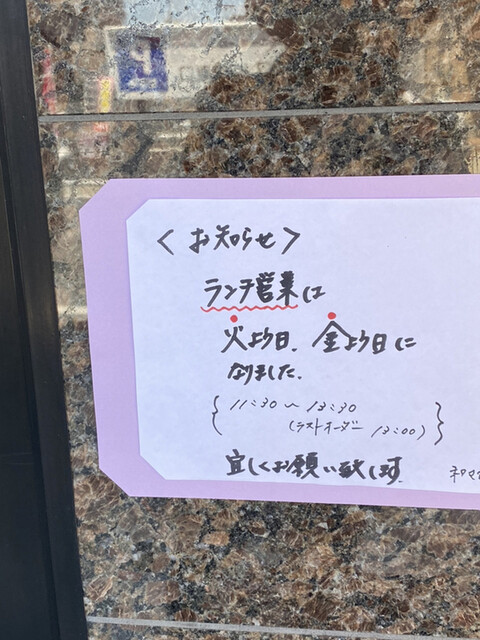 <お知らせ>
ランチ営業は
火よう日、金よう日に
なりました。
{ 11:30～13:30
(ラストオーダー 13:00) }
宜しくお願い致します